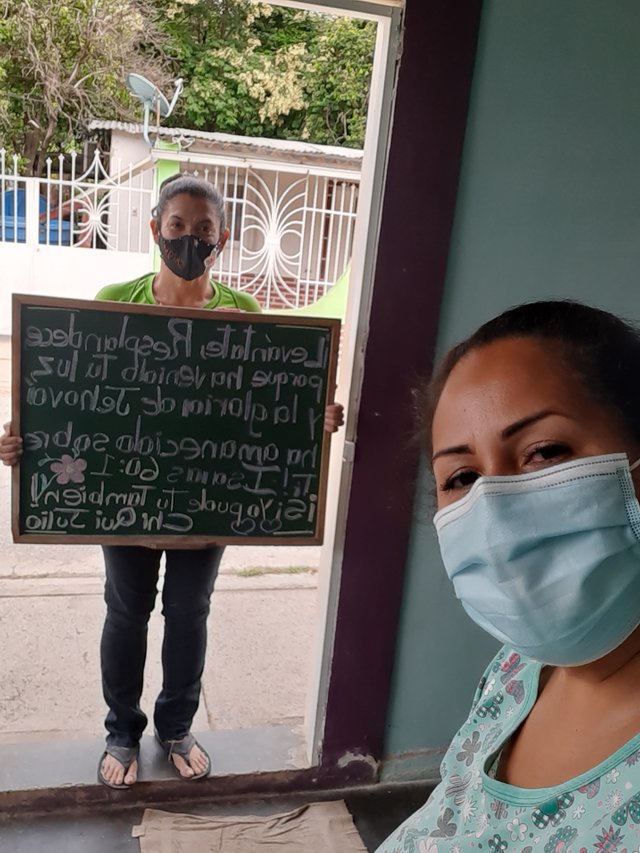 Levántate, Resplandece
porque ha venido Tu luz,
y la gloria de Jehová
ha amanecido sobre
Ti! Isaías 60:1
¡Si yo pude Tu También!
Chi Qui Julio